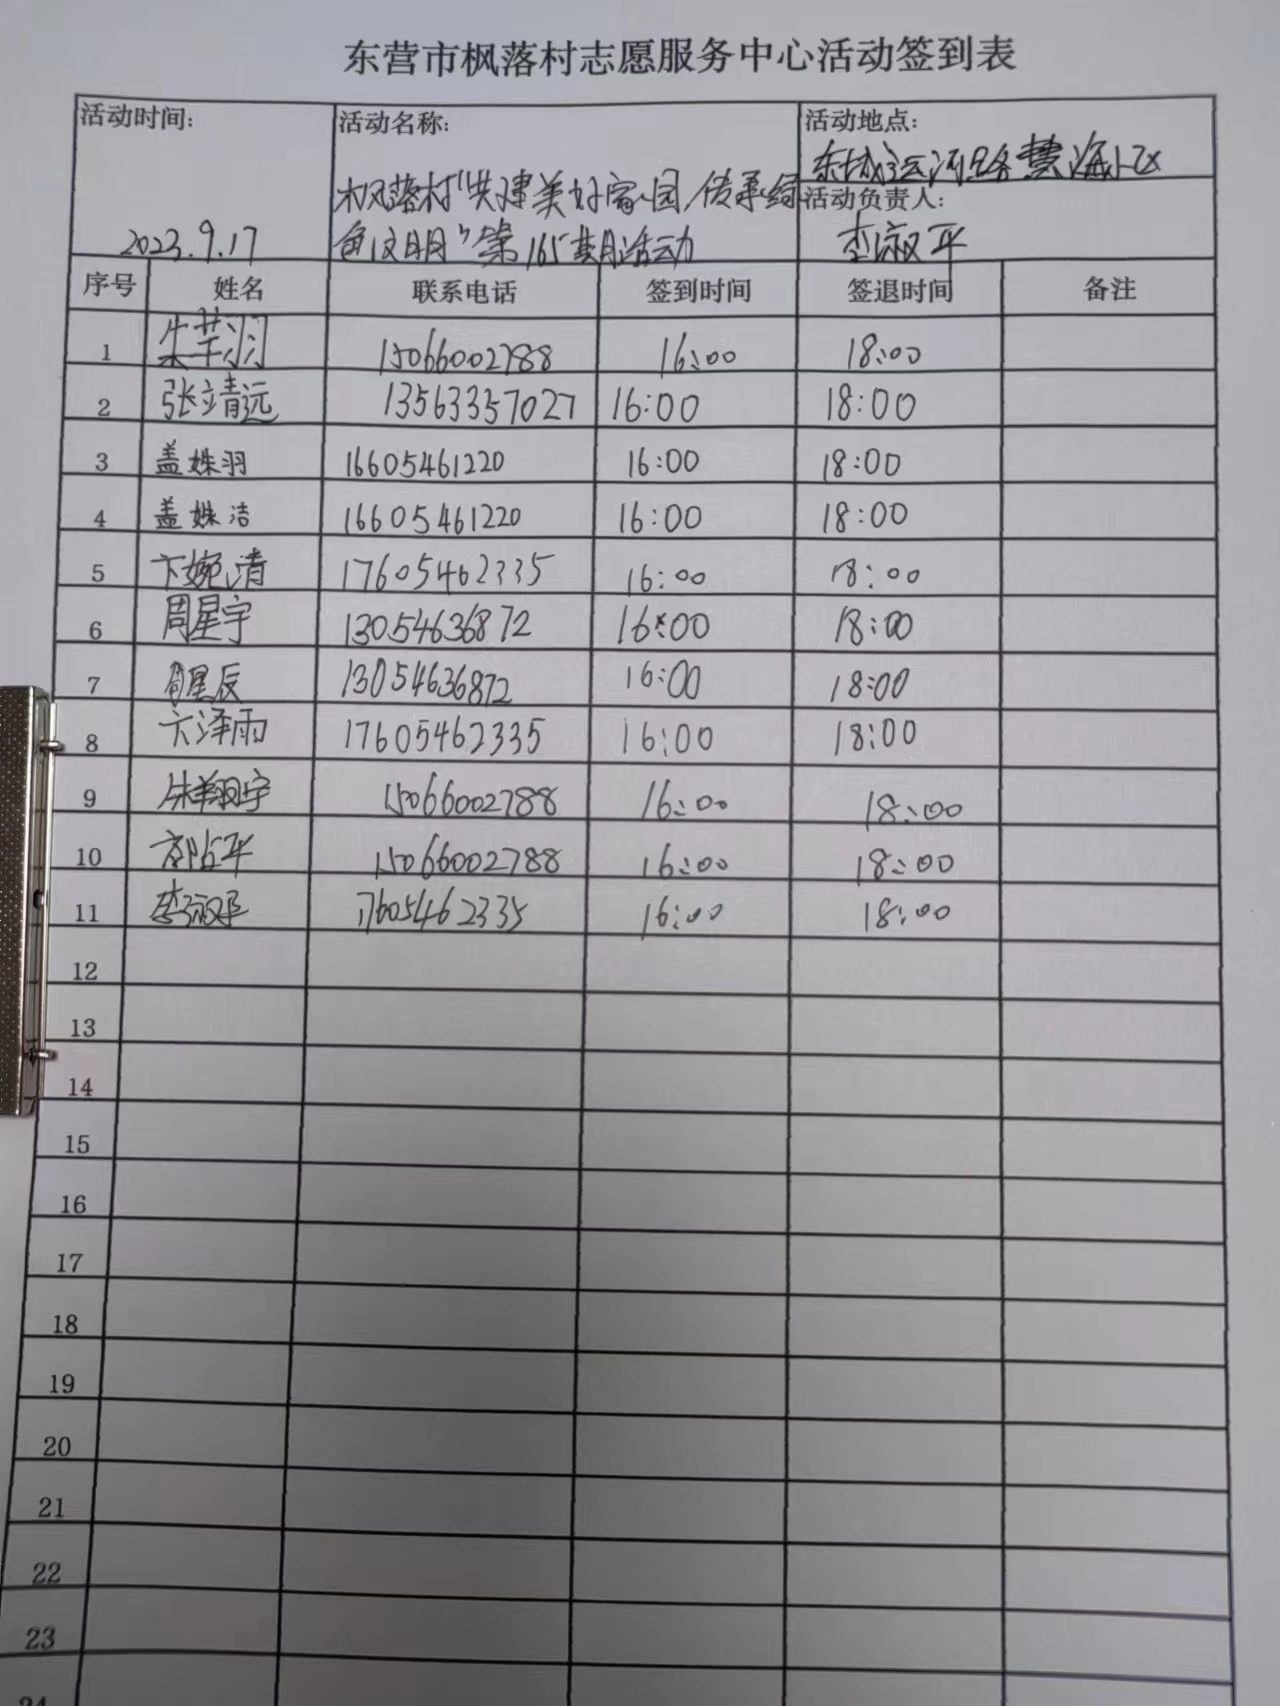 东营市枫落村志愿服务中心活动签到表
活动时间: 活动名称: 活动地点:
东城运河路慧海小区
枫落村"共建美好家园,传承绿 活动负责人:
2023.9.17 色文明"第165期活动 李淑平
序号 姓名 联系电话 签到时间 签退时间 备注
1 朱芊羽 15066002788 16:00 18:00
2 张靖远 13563357027 16:00 18:00
3 盖姝羽 16605461220 16:00 18:00
4 盖姝洁 16605461220 16:00 18:00
5 卞婉清 17605462335 16:00 18:00
6 周星宇 13054636872 16:00 18:00
7 周星辰 13054636872 16:00 18:00
8 卞泽雨 17605462335 16:00 18:00
9 朱翔宇 15066002788 16:00 18:00
10 平 15066002788 16:00 18:00
11 李淑平 17605462335 16:00 18:00
12
13
14
15
16
17
18
19
20
21
22
23
24